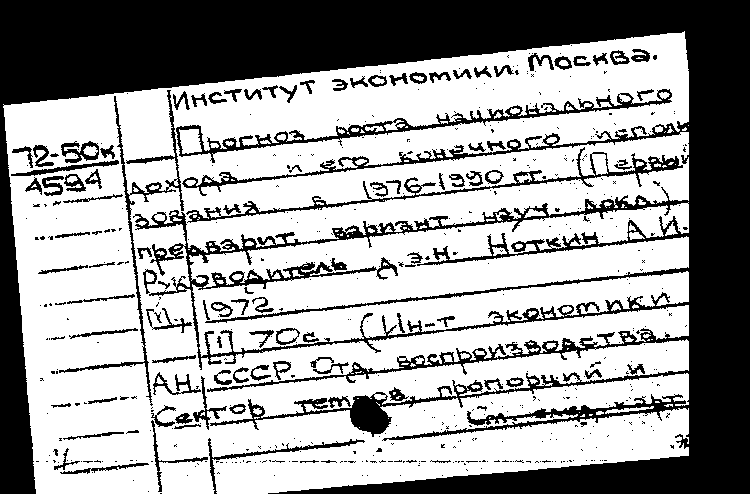 Институт экономики. Москва.
Прогноз роста национального
72-50к
4594
дохода и его конечного исполь
зования в 1976-1990 гг. (Первый
предварит. вариант науч. докл.)
Руководитель д.э.н. Ноткин А.И.
М., 1972.
[1], 70с. (Ин-т экономики
АН. СССР. Отд. воспроизводства.
Сектор темпов, пропорций и
См. след. карт.